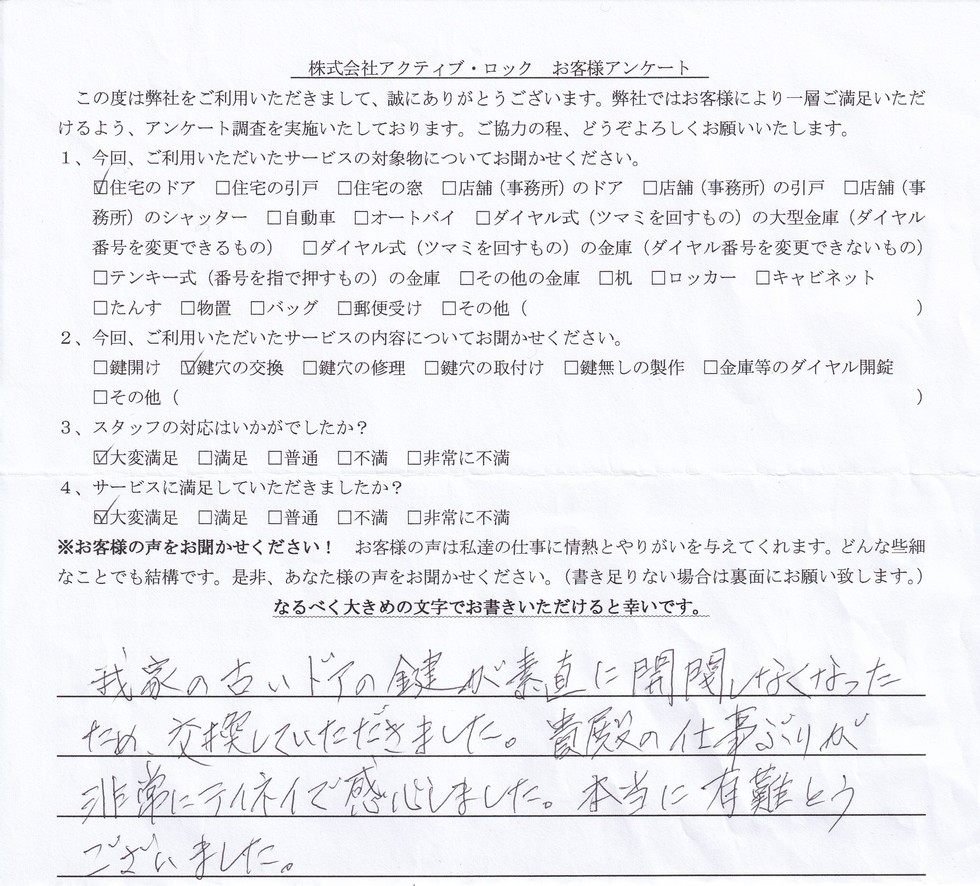 株式会社アクティブ・ロック　お客様アンケート
この度は弊社をご利用いただきまして、誠にありがとうございます。弊社ではお客様により一層ご満足いただ
けるよう、アンケート調査を実施いたしております。ご協力の程、どうぞよろしくお願いいたします。
1、今回、ご利用いただいたサービスの対象物についてお聞かせください。
☑住宅のドア　□住宅の引戸　□住宅の窓　□店舗（事務所）のドア　□店舗（事務所）の引戸　□店舗（事
務所）のシャッター　□自動車　□オートバイ　□ダイヤル式（ツマミを回すもの）の大型金庫（ダイヤル
番号を変更できるもの）　□ダイヤル式（ツマミを回すもの）の金庫（ダイヤル番号を変更できないもの）
□テンキー式（番号を指で押すもの）の金庫　□その他の金庫　□机　□ロッカー　□キャビネット
□たんす　□物置　□バッグ　□郵便受け　□その他（　）
2、今回、ご利用いただいたサービスの内容についてお聞かせください。
□鍵開け　☑鍵穴の交換　□鍵穴の修理　□鍵穴の取付け　□鍵無しの製作　□金庫等のダイヤル開錠
□その他（　）
3、スタッフの対応はいかがでしたか？
☑大変満足　□満足　□普通　□不満　□非常に不満
4、サービスに満足していただきましたか？
☑大変満足　□満足　□普通　□不満　□非常に不満
※お客様の声をお聞かせください！　お客様の声は私達の仕事に情熱とやりがいを与えてくれます。どんな些細
なことでも結構です。是非、あなた様の声をお聞かせください。（書き足りない場合は裏面にお願い致します。）
なるべく大きめの文字でお書きいただけると幸いです。
我家の古いドアの鍵が素直に開閉しなくなった
ため、交換していただきました。貴殿の仕事ぶりが
非常にテイネイで感心しました。本当に有難とう
ございました。